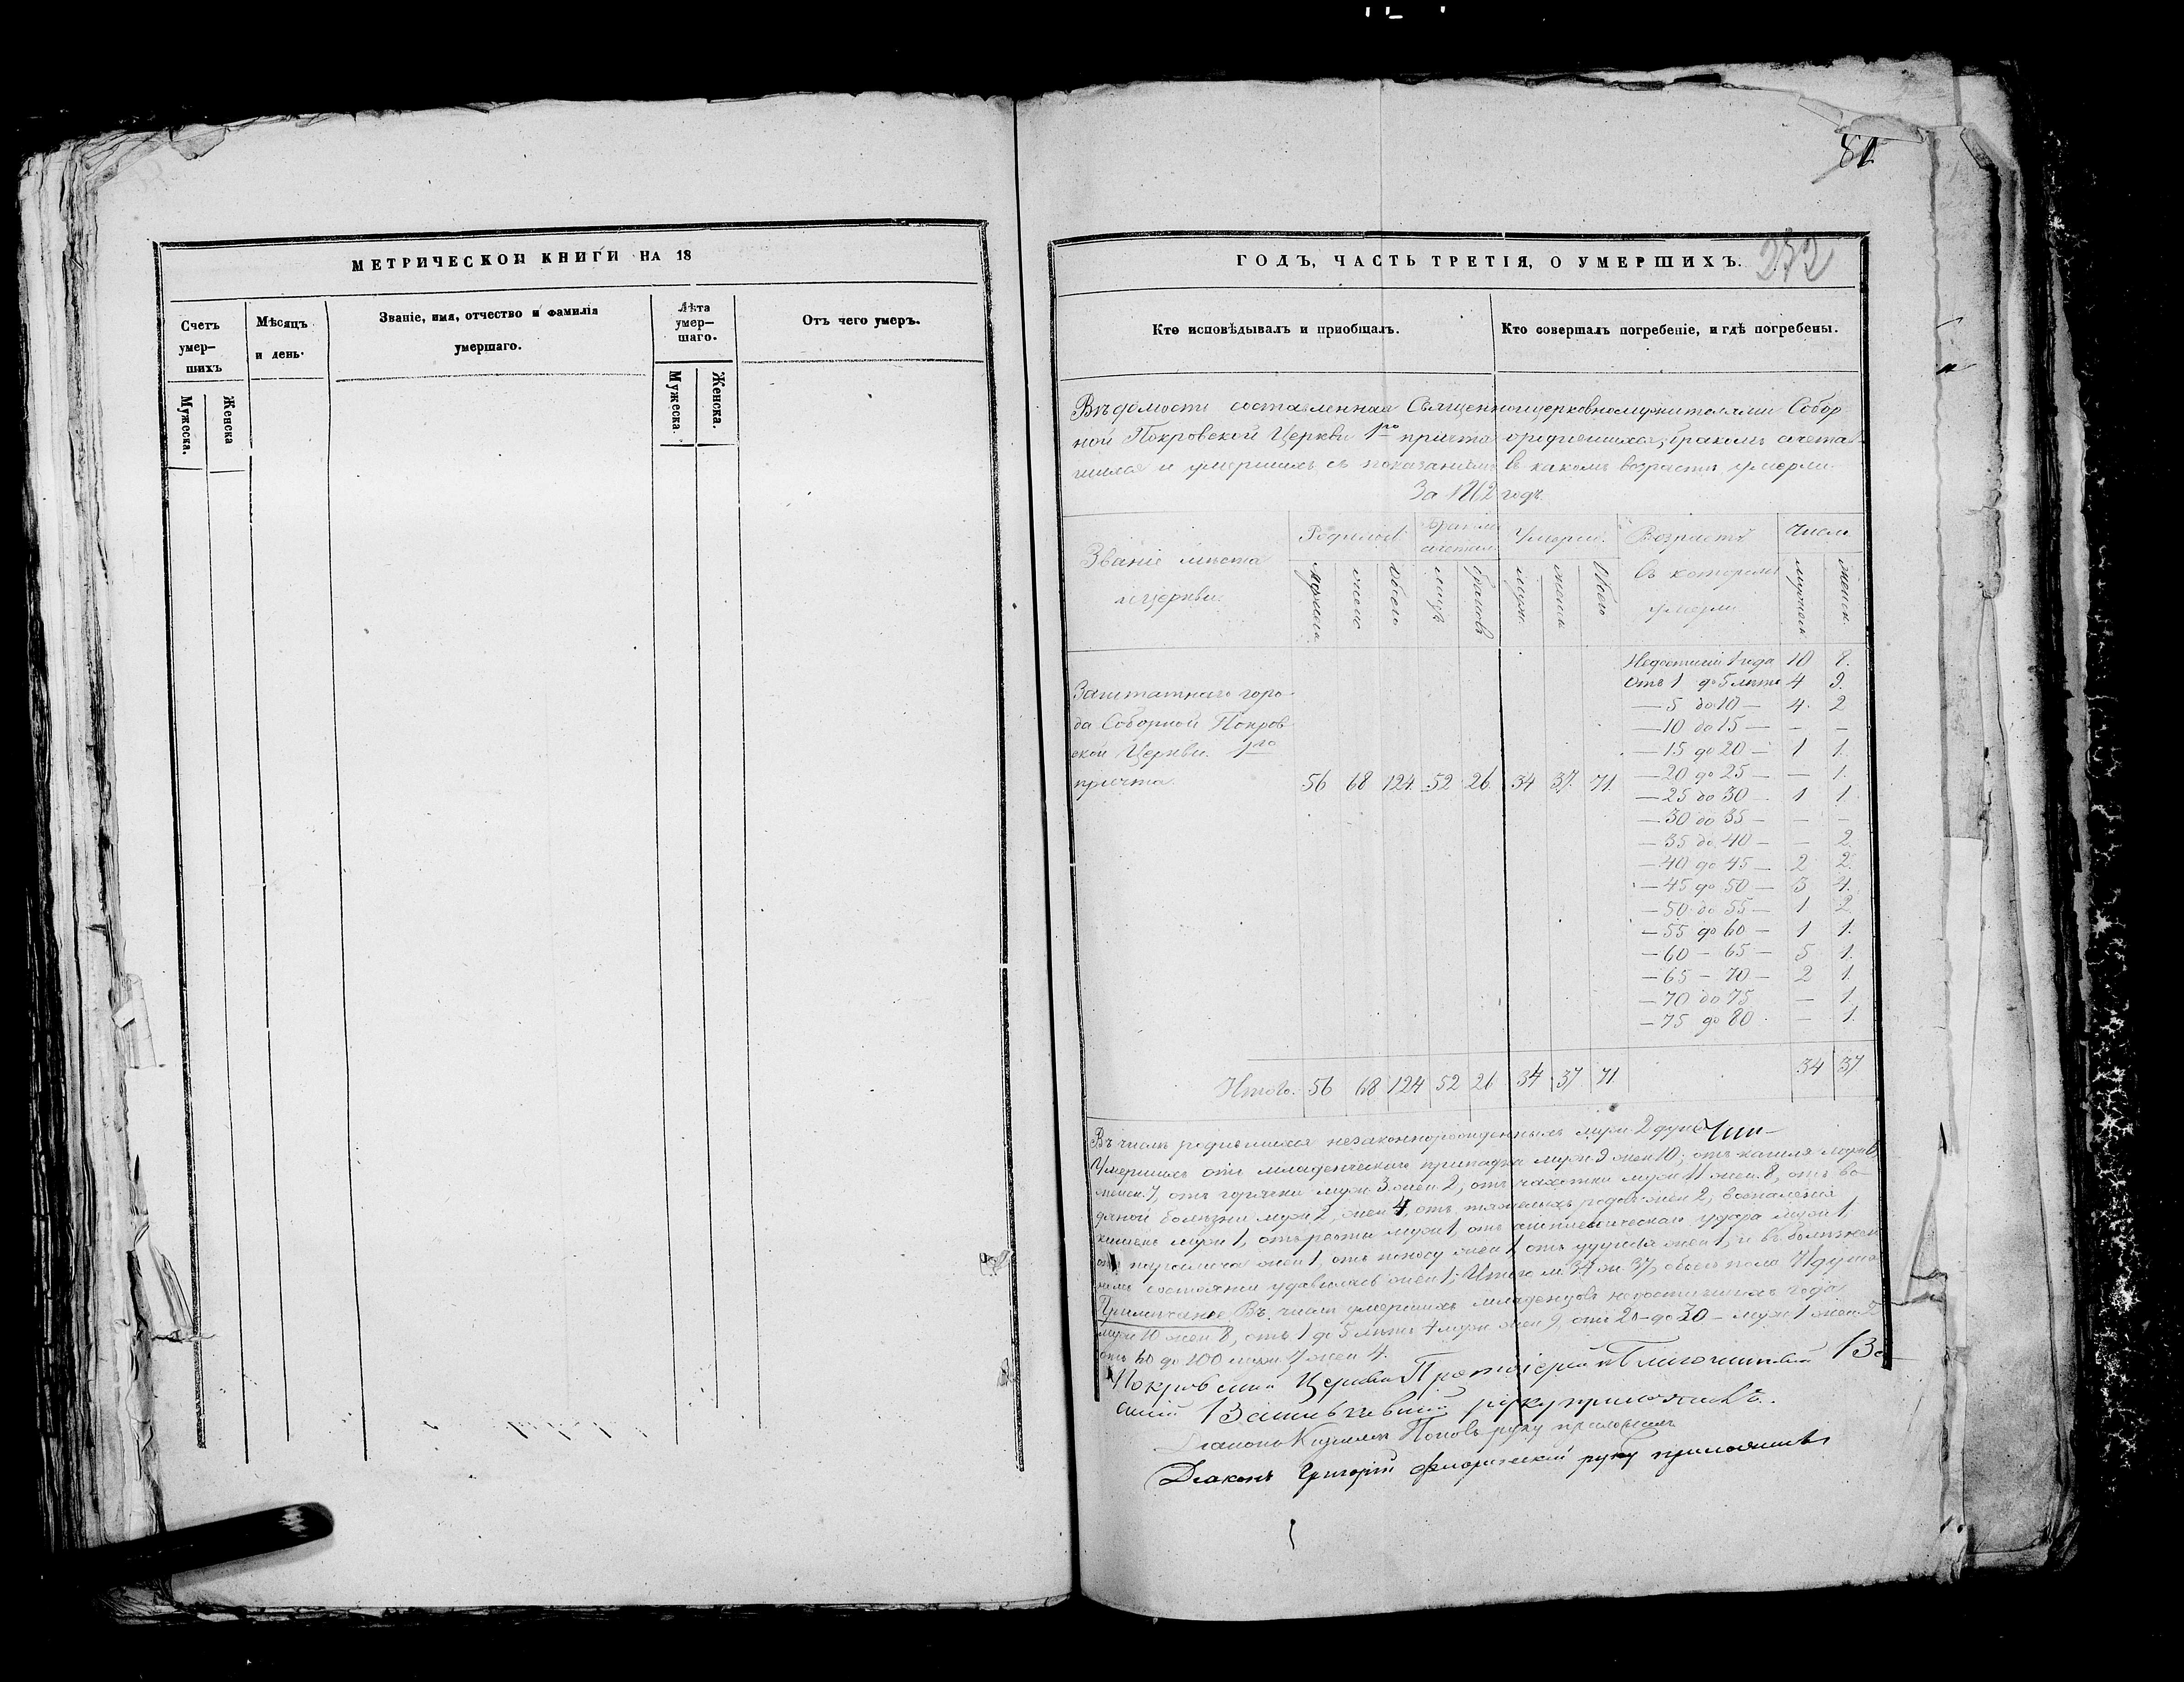 МЕТРИЧЕСКОЙ КНИГИ НА 18
Счетъ умер— шихъ
Мѣсяцъ и день.
Званіе, имя, отчество и фамилія умершаго.
Лѣта умер— шаго.
Отъ чего умеръ.
Мужеска.
Женска
Мужеска.
Женска.
81
232
ГОДЪ, ЧАСТЬ ТРЕТІЯ, О УМЕРШИХЪ.
Кто исповѣдывалъ и пріобщалъ.
Кто совершалъ погребеніе, и гдѣ погребены.
Вѣдомость составленная Священноцерковнослужителями Собор
ной Покровской Церкви 1го причта о родившихся, бракомъ сочетав
шихся и умершихъ съ показаніемъ въ какомъ возрастѣ умерли
За 1862 годъ.
Званіе мѣста и Церкви.
Родилось
Бракомъ сочетал.
Умерло.
Возрастъ въ которомъ умерли
Число
Недостигш. 1 года 10 8.
Отъ 1 до 5 лѣтъ 4 9.
— 5 до 10 — 4. 2
— 10 до 15 — — —
— 15 до 20 — 1 1.
— 20 до 25 — — 1.
— 25 до 30 — 1 1.
— 30 до 35 — — —
— 35 до 40 — — 2.
— 40 до 45 — 2 2.
— 45 до 50 — 3 4.
— 50 до 55 — 1 2
— 55 до 60 — 1 1.
— 60 — 65 — 5 1.
— 65 — 70 — 2 1.
— 70 до 75 — 1.
— 75 до 80 — 1.
Заштатнаго горо
да Соборной Покров
ской Церкви. 1го
причта. 56 68 124. 52 26. 34 37. 71.
Итого. 56 68 124 52 26 34 37 71 34 37
Въ числѣ родившихся незаконнорожденныхъ муж. 2 души
Умершихъ отъ младенческаго припадка муж. 9 жен. 10; отъ кашля муж. 6
женск. 7, отъ горячки муж. 3. жен. 2, отъ чахотки муж. 11 жен. 8, отъ во
дяной болѣзни муж. 2, жен. 4, отъ тяжелыхъ родовъ жен. 2, воспаленія
муж. 1, отъ муж. 1, отъ удара муж. 1,
отъ паралича жен. 1, отъ поносу жен. 1 отъ удушья жен. 1, и въ болѣзнен
номъ состояніи удавилась жен. 1, Итого м. 34 ж. 37, обоего пола 71 душа
Примѣчаніе. Въ числѣ умершихъ младенцовъ недостигшихъ года
муж. 10 жен. 8, отъ 1 до 5 лѣтъ 4 муж. жен. 9, отъ 20 — до 30 — муж. 1 жен. 2
отъ 60 до 100 муж. 7 жен. 4.
Покровской Церкви Протоіерей и Благочинный Ва
силій руку приложилъ.
Діаконъ Поповъ руку приложилъ
Діаконъ Григорій руку приложилъ